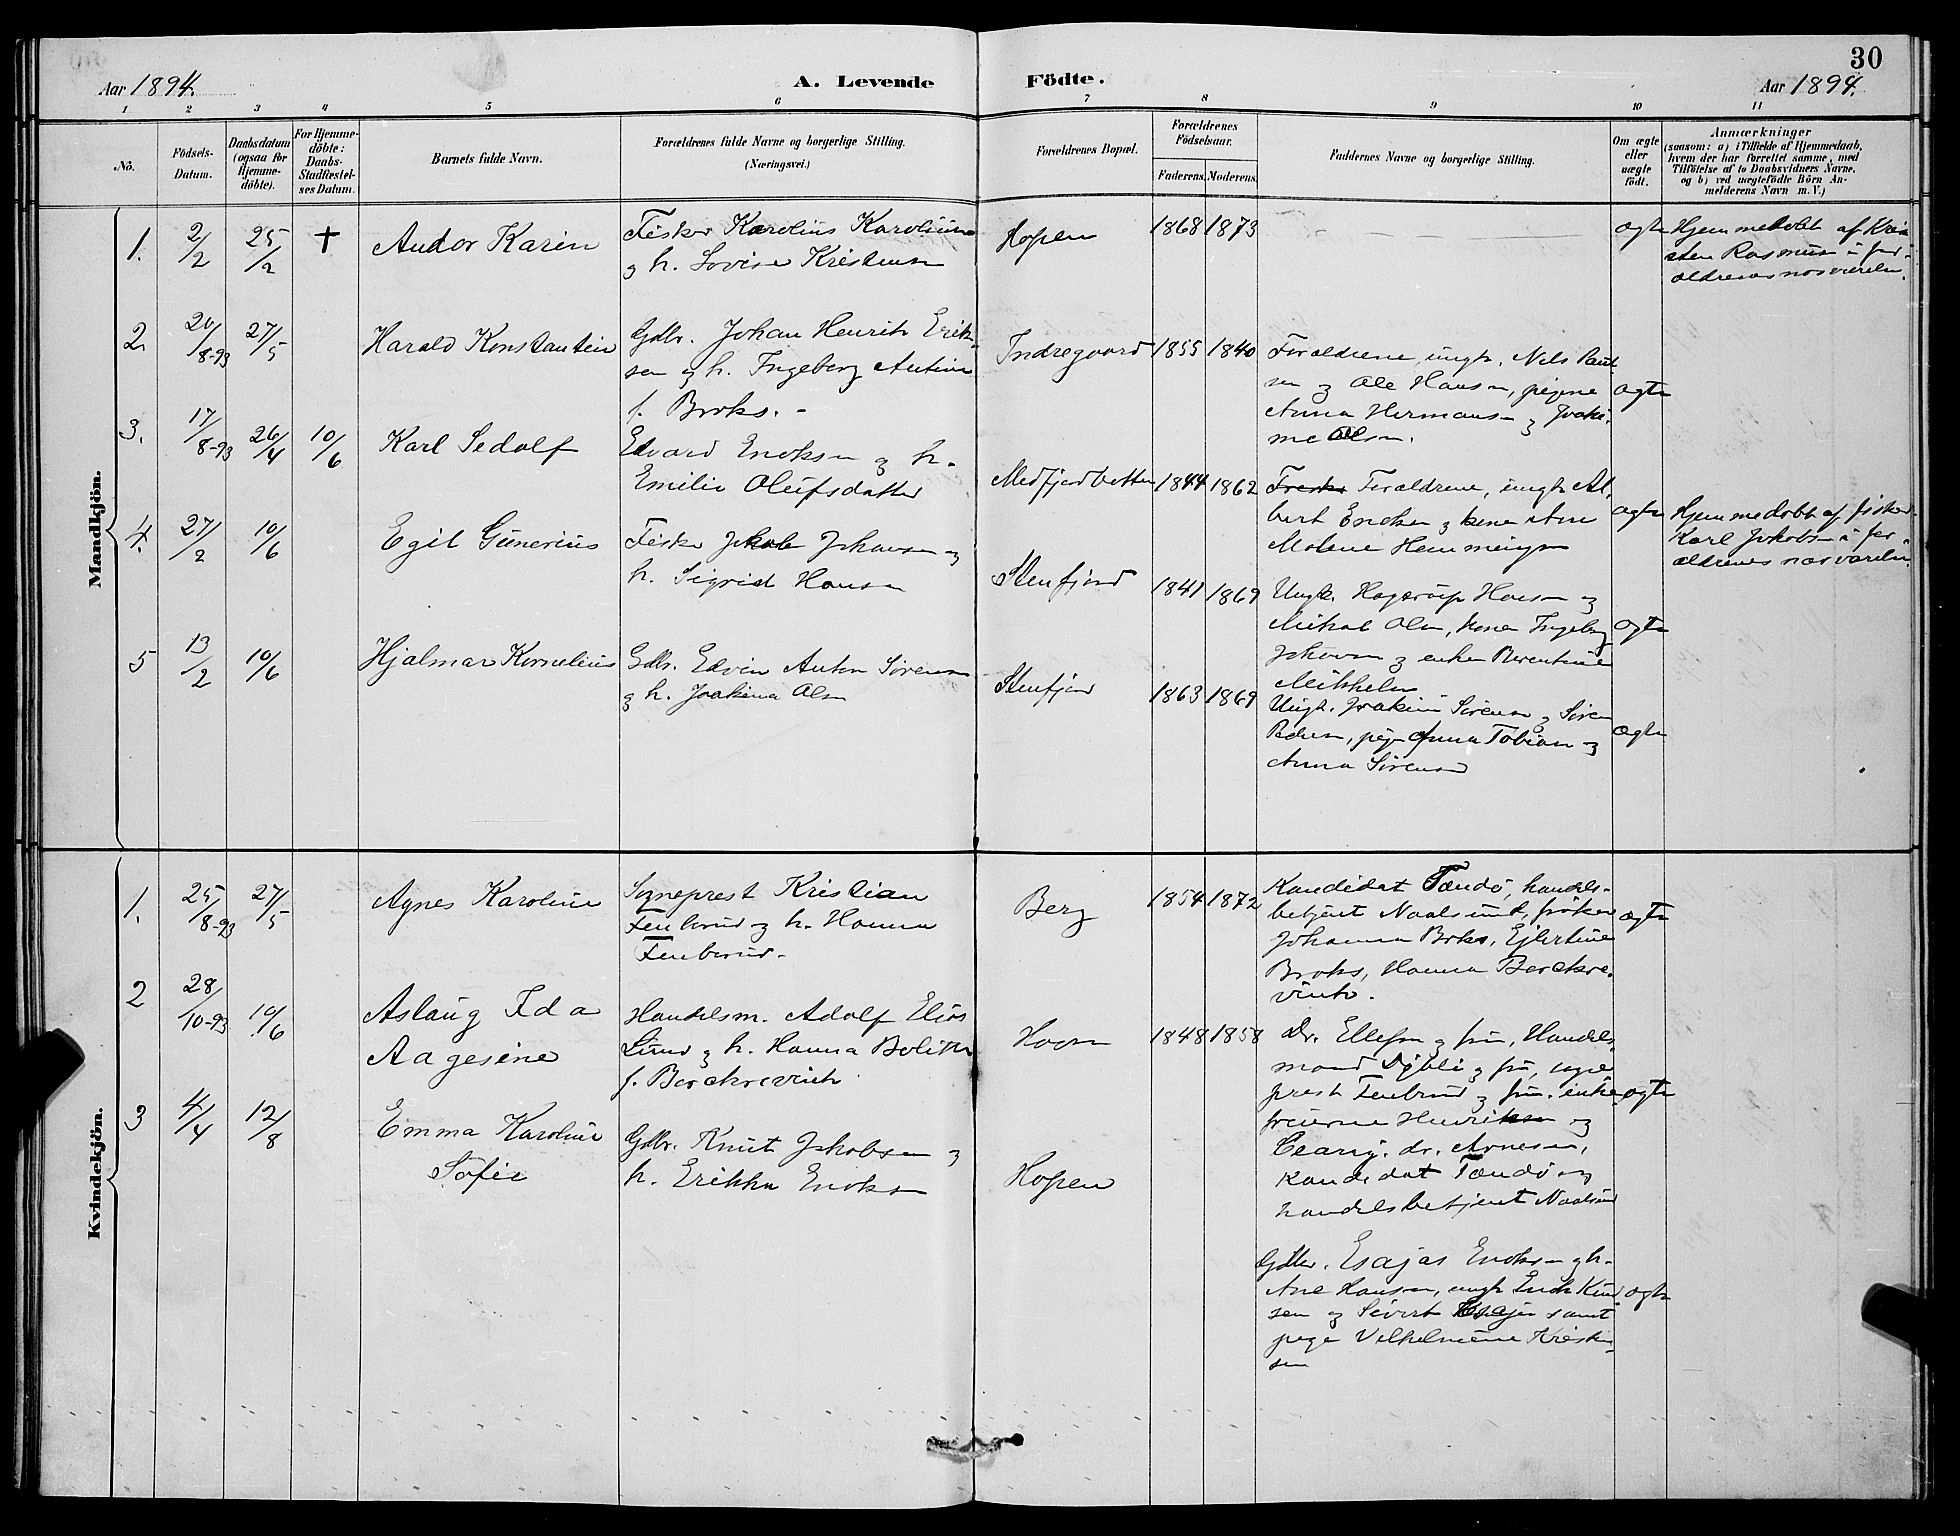 30
Aar 1894. A. Levende Födte. Aar 1894.
1 2 3 4 5 6 7 8 9 10 11
No.
Födsels-
Datum.
Daabsdatum
(ogsaa for
Hjemme-
döbte).
For Hjemme-
döbte:
Daabs-
Stadfæstel-
ses Datum.
Barnets fulde Navn.
Forældrenes fulde Navne og borgerlige Stilling.
(Næringsvei.)
Forældrenes Bopæl.
Forældrenes
Födselsaar.
Faderens. Moderens.
Faddernes Navne og borgerlige Stilling.
Om ægte
eller
uægte
födt.
Anmærkninger
(saasom: a) i Tilfælde af Hjemmedaab,
hvem der har forrettet samme, med
Tilföielse af to Daabsvidners Navne,
og b) ved uægtefödte Börn An-
melderens Navn m. V.)
Mandkjön.
1. 2/2 25/2 † Audor Karin
Fisker Karolius
g h. Lovise Kristensen
Hopen 1868 1873
ægte
Hjemmedobt af Kris
sten Rasmusen i for-
ældrenes nærværelse.
2. 20/8-93 27/5 Harald Konstantin
Gdbr. Johan Henrik Erik-
sen g h. Ingeborg
f. Broks.
Indregaard 1855 1840
Forældrene, ungk. Nils
sen g Ole Hansen, pigerne
Anna Hermansen g Joaki-
me Olsen.
ægte
3. 17/8-93 26/4 10/6 Karl Sedolf
Edvard Enoksen g h.
Emilie Olufsdatter
Medfjordbotten 1844 1862
Forældrene, ungk. Al-
bert g kone Ane
Molene Hemmingsen
ægte
Hjemmedobt af fisker
Karl Jakobsen i for-
ældrenes nærværelse.
4. 27/2 10/6 Egil Gunerius
Fisker Jakob Johansen g
h. Sigrid Hansen
Stenfjord 1841 1869
Ungk. Hagerup Hansen g
Mikal Olsen, kone Ingeborg
Johansen g enke Berentine
Mikkelsen
ægte
5 13/2 10/6 Hjalmar Kornelius
Gdbr. Edvin Anton Sørensen
g h. Joakima Olsen
Stenfjord 1863 1869
Ungk. Joakim Sørensen g Søren
Pedersen, pige Anna Tobiasen g
Anna Sørensen
ægte
Kvindekjön.
1. 25/8-93 27/5 Agnes Karoline
Sogneprest Kristian
Tenbrud g h. Hanna
Tenbrud.
Berg 1854 1872
Kandidat Tændø, handels-
betjent Naalsund, frøken
Johanna Broks, Ejlertine
Broks, Hanna Berckre-
vinto.
ægte
2 28/10-93 10/6 Aslaug Ida
Aagesine
Handelsm. Adolf Elias
Lund g h. Hanna Bolitte
f. Berckrevink
Havn 1848 1858
Dr. Ellefsen g fru, Handels-
mand g fru, sogne
prest Tenbrud g fru, enke-
fruerne Henriksen g
dr. Arnesen,
Kandidat Tændø og
handelsbetjent Naalsund
ægte
3 4/4 12/8 Emma Karoline
Sofie
Gdbr. Knut Jakobsen g
h. Erikka Enoksen
Hopen
Gdbr. Esajas Enoksen g h.
Ane Hansen, ungk. Enok Knud
sen g Sivert Esajas samt
pige Vilhelmine Kristen-
sen
ægte